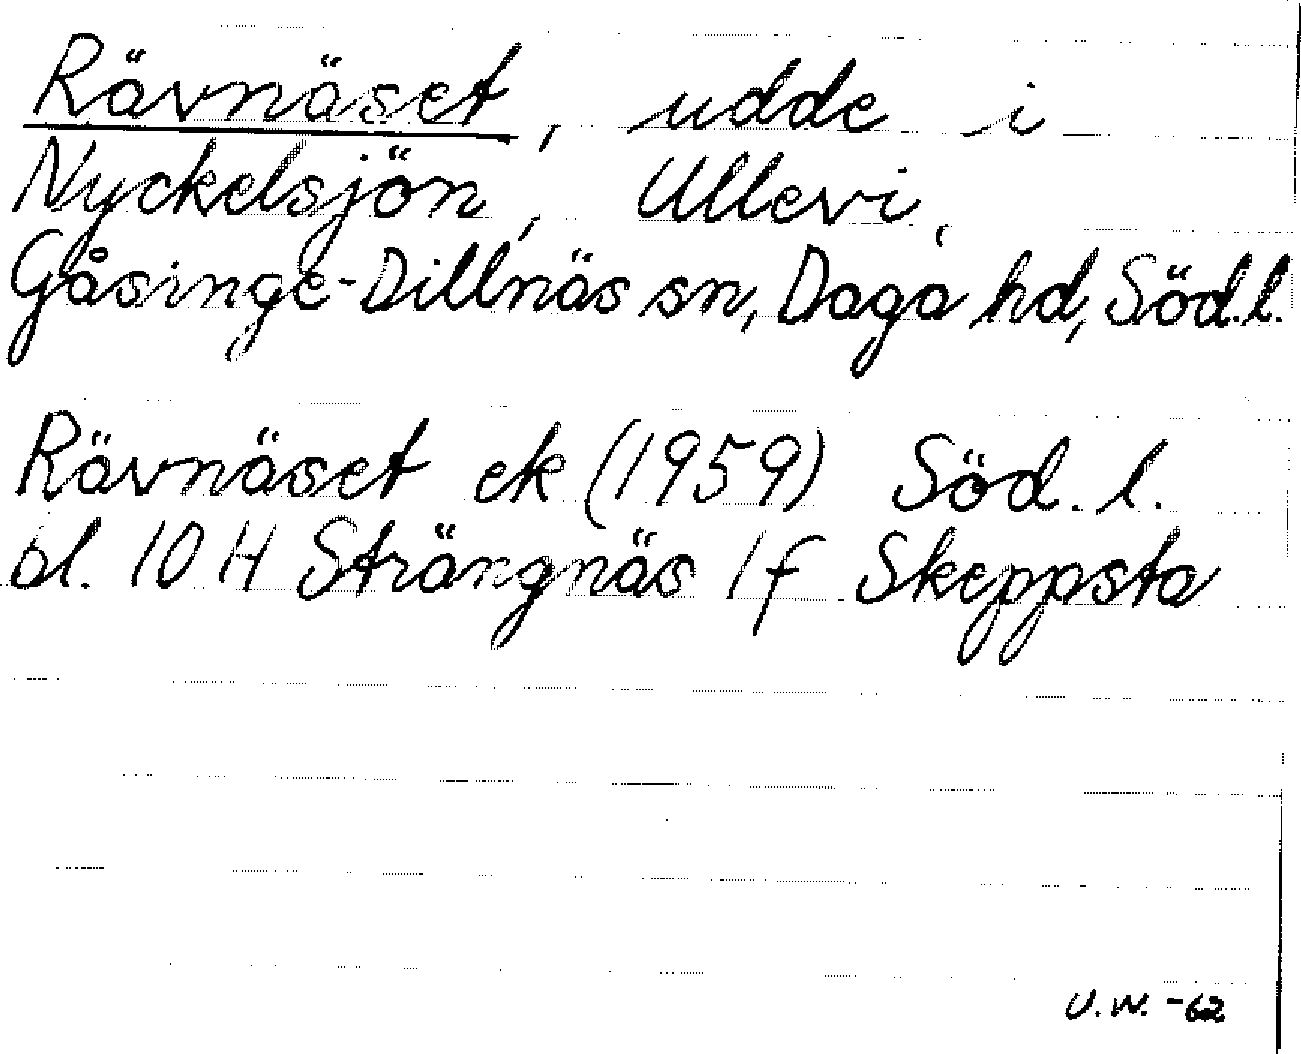 Rävnäset, udde i
Nyckelsjön, Ullevi,
Gåsinge-Dillnäs sn, Daga hd, Söd.l.
Rävnäset ek (1959) Söd. l.
bl. 10 H Strängnäs 1 f Skeppsta
U.W. -62